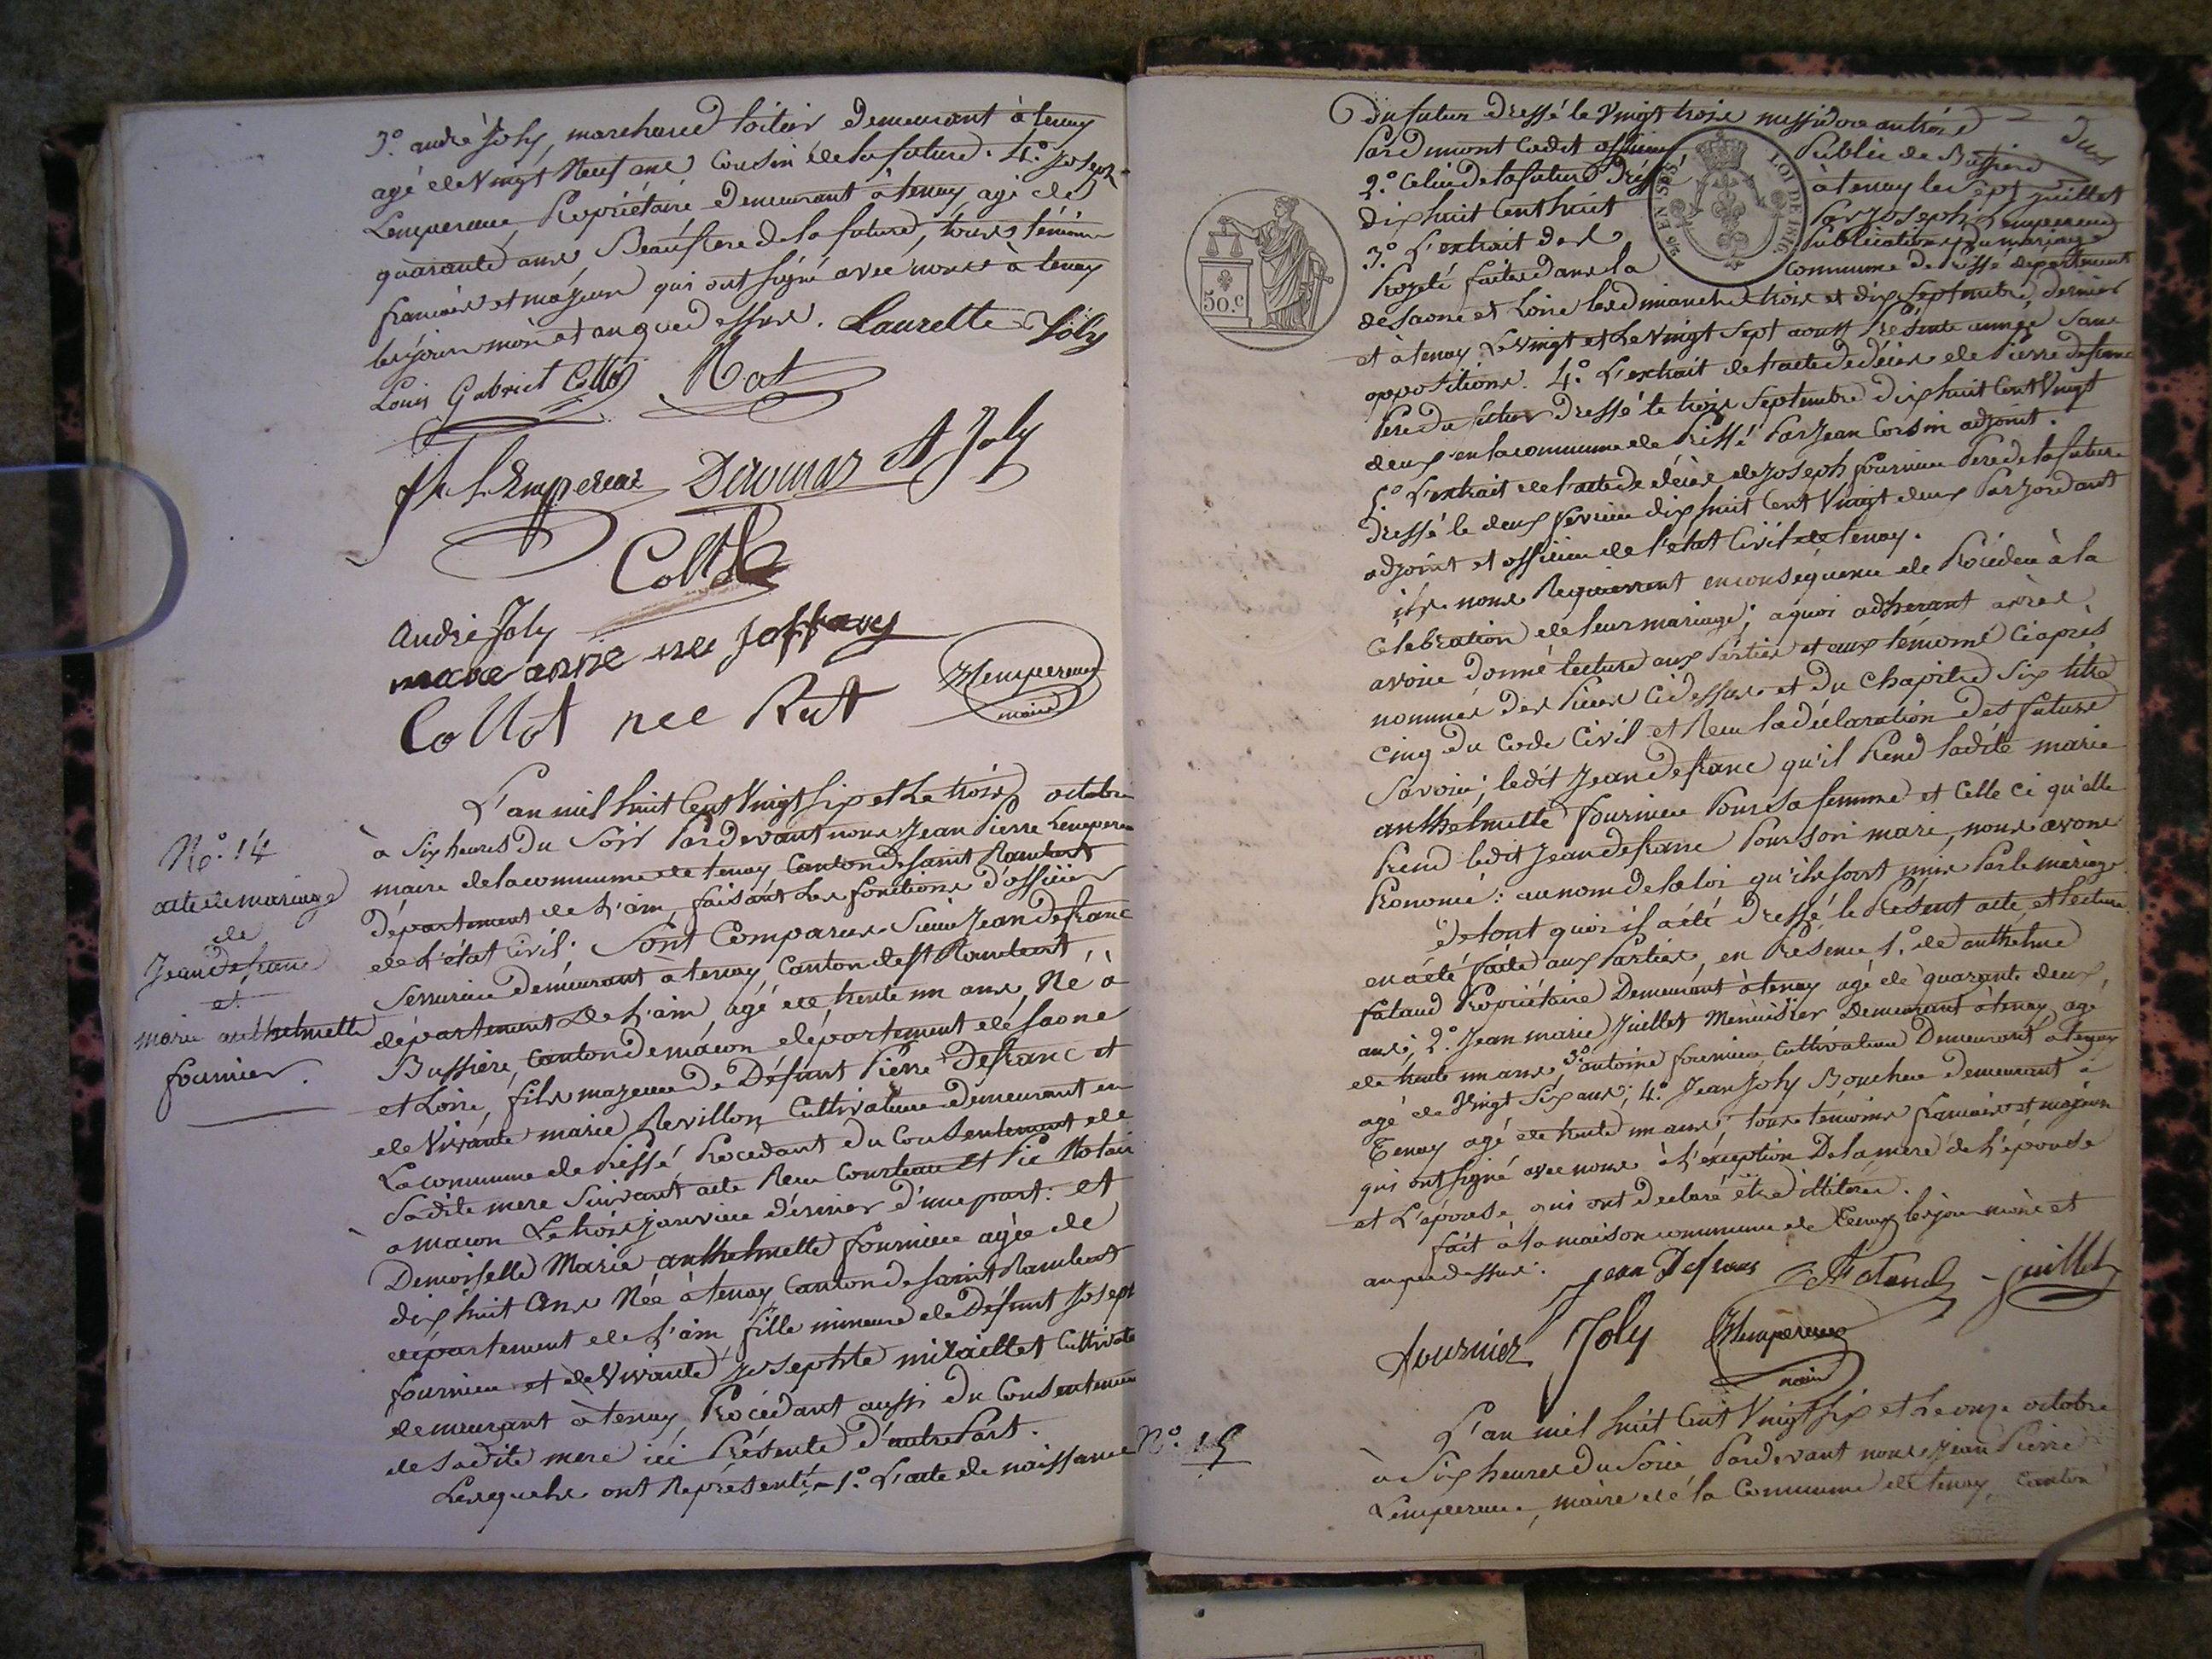 3.º andré Joly, marchand toilier demeurant à tenay
agé de Vingt Neuf ans Cousin de la future. 4.º Joseph
Lempereur, Propriétaire demeurant à tenay, agé de
quarante ans Beaufrere de la future, tous témoins
francais et majeurs qui ont signé avec nous à tenay
les jour mois et an que dessus. Laurette Joly
Louis Gabriel Collot Rat
Lempereur A Joly
Collot
André Joly
marie anne née Joffray
Collot nee Rut
JLempereur
maire
Nº. 14
acte de mariage
de
Jean Defranc
et
marie anthelmette
fournier.
L'an mil huit Cent Vingt six et le trois octobre
à six heures du Soir Pardevant nous Jean Pierre Lempereur
maire de la commune de tenay Canton de saint Rambert
département de L'ain, faisant les fonctions d'officier
de l'état Civil; Sont Comparus Sieur Jean Defranc
Serrurier demeurant à tenay, Canton de st Rambert
département de L'ain, agé de trente un ans, Né à
Bussiere, Canton de mâcon département de saone
et Loire, fils majeur de Défunt Pierre Defranc et
de Vivante marie Revillon, Cultivateur demeurant en
La commune de Prissé Procedant du Consentement de
sadite mere Suivant acte Recu Courteau et Pic Notaires
a macon Le trois janvier dernier d'une part: et
Demoiselle Marie anthelmette fournier agée de
dix huit ans Née à tenay, Canton de saint Rambert
département de L'ain fille mineure de Défunt Joseph
fournier et de Vivante Josephte miraillet Cultivate
demeurant à tenay, Procédant aussi du Consentement
de sadite mere ici Présente d'autre Part.
Lesquels ont Représenté, 1.º L'acte de naissance
Du futur dressé le Vingt trois messidor an trois
Par Dumont Cadet officier Public de Bussiere
2.º Celui de la future Dréssé à tenay le sept juillet
dix huit Cent huit Par Joseph Lempereur
3.º L'extrait des Publications du mariage
Projeté faites dans la Commune de Prissé département
de saone et Loire les dimanches trois et dix septembre dernier
et à tenay Le vingt et Le Vingt Sept aoust Présente année Sans
oppositions. 4.º L'extrait de l'acte de décès de Pierre defranc
Pere du futur Dressé le trois Septembre dix huit Cent Vingt
deux en la commune de Prissé Par Jean Corsin adjoint.
5.º L'extrait de l'acte de décès de Joseph fournier Pere de la future
Dressé le deux fevrier dix huit Cent Vingt deux Par Jordant
adjoint et officier de l'etat Civil de tenay.
ils nous Requierrent en consequence de Procéder à la
Célébration de leur mariage; a quoi adherant après
avoir donné lecture aux Parties et aux témoins Ci après
nommés des Pieces Ci dessus et du Chapitre Six titre
Cinq du Code Civil et Recu la déclaration des futurs
Savoir; ledit Jean Defranc qu'il Prend ladite marie
anthelmette fournier Pour sa femme et Celle Ci qu'elle
Prend ledit Jean defranc Pour son mari, nous avons
Prononcé: au nom de la loi qu'ils sont unis Par le mariage
de tout quoi il a été dressé le Présent acte, et lecture
en a été faite aux Parties, en Présence 1.º de anthelme
fataud Propriétaire Demeurant à tenay agé de quarante deux
ans, 2.º Jean marie Juillet Menuisier Demeurant à tenay, agé
de trente un ans 3º antoine fournier Cultivateur Demeurant à tenay
agé de Vingt Six ans; 4.º Jean Joly Boucher demeurant à
Tenay agé de trente un ans; tous témoins francais et majeurs
qui ont signé avec nous à l'exception De la mere de l'épouse
et L'épouse qui ont declaré etre illiterées.
fait à la maison commune de Tenay les jour mois et
an que dessus. Jean Defranc Fataud juillet
fournier Joly JLempereur
maire
50.c
LOI DE 1816.
Nº. 15
L'an mil huit Cent Vingt six et Le onze octobre
à Six heures du Soir Pardevant nous Jean Pierre
Lempereur, maire de la Commune de tenay, canton